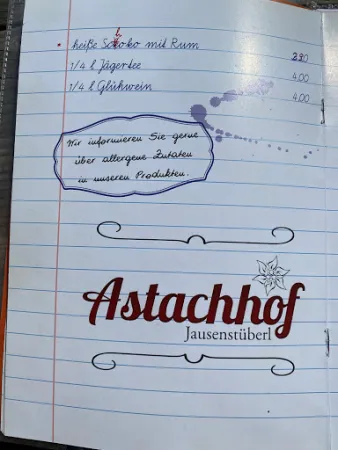 heiße Schoko mit Rum 2.90
1/4 l Jägertee 4.00
1/4 l Glühwein 4.00
Wir informieren Sie gerne
über allergene Zutaten
in unseren Produkten.
Astachhof
Jausenstüberl